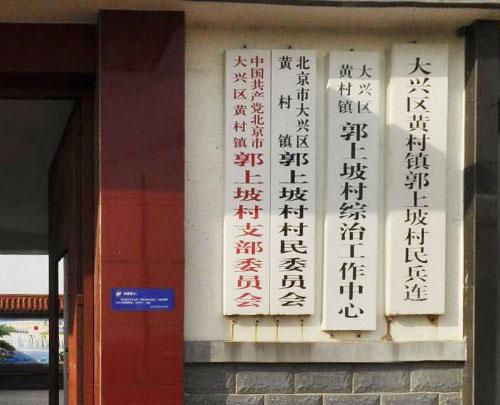 中国共产党北京市
大兴区黄村镇
郭上坡村支部委员会
北京市大兴区
黄村镇
郭上坡村村民委员会
大兴区
黄村镇
郭上坡村综治工作中心
大兴区黄村镇郭上坡村民兵连